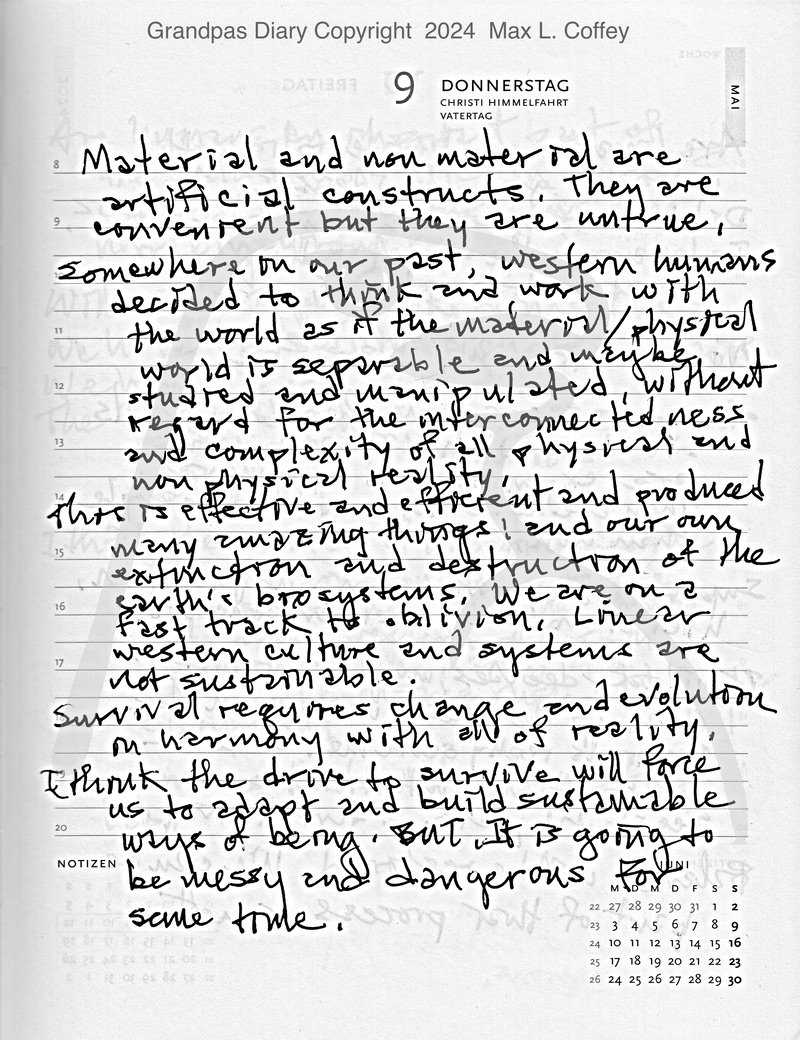 Grandpas Diary Copyright 2024 Max L. Coffey
9 DONNERSTAG
CHRISTI HIMMELFAHRT
VATERTAG
MAI
8 Material and non material are
artificial constructs. They are
9 convenient but they are untrue.
Somewhere in our past, western humans
decided to think and work with
11 the world as if the material/physical
world is separable and maybe
12 studied and manipulated, without
regard for the interconnectedness
13 and complexity of all physical and
non physical reality.
14 This is effective and efficient and produced
many amazing things! and our own
15 extinction and destruction of the
earth's biosystems. We are on a
16 fast track to oblivion. Linear
western culture and systems are
17 not sustainable.
Survival requires change and evolution
in harmony with all of reality.
19 I think the drive to survive will force
us to adapt and build sustainable
20 ways of being. BUT, It is going to
NOTIZEN
be messy and dangerous for
some time.
JUNI
M D M D F S S
22 27 28 29 30 31 1 2
23 3 4 5 6 7 8 9
24 10 11 12 13 14 15 16
25 17 18 19 20 21 22 23
26 24 25 26 27 28 29 30